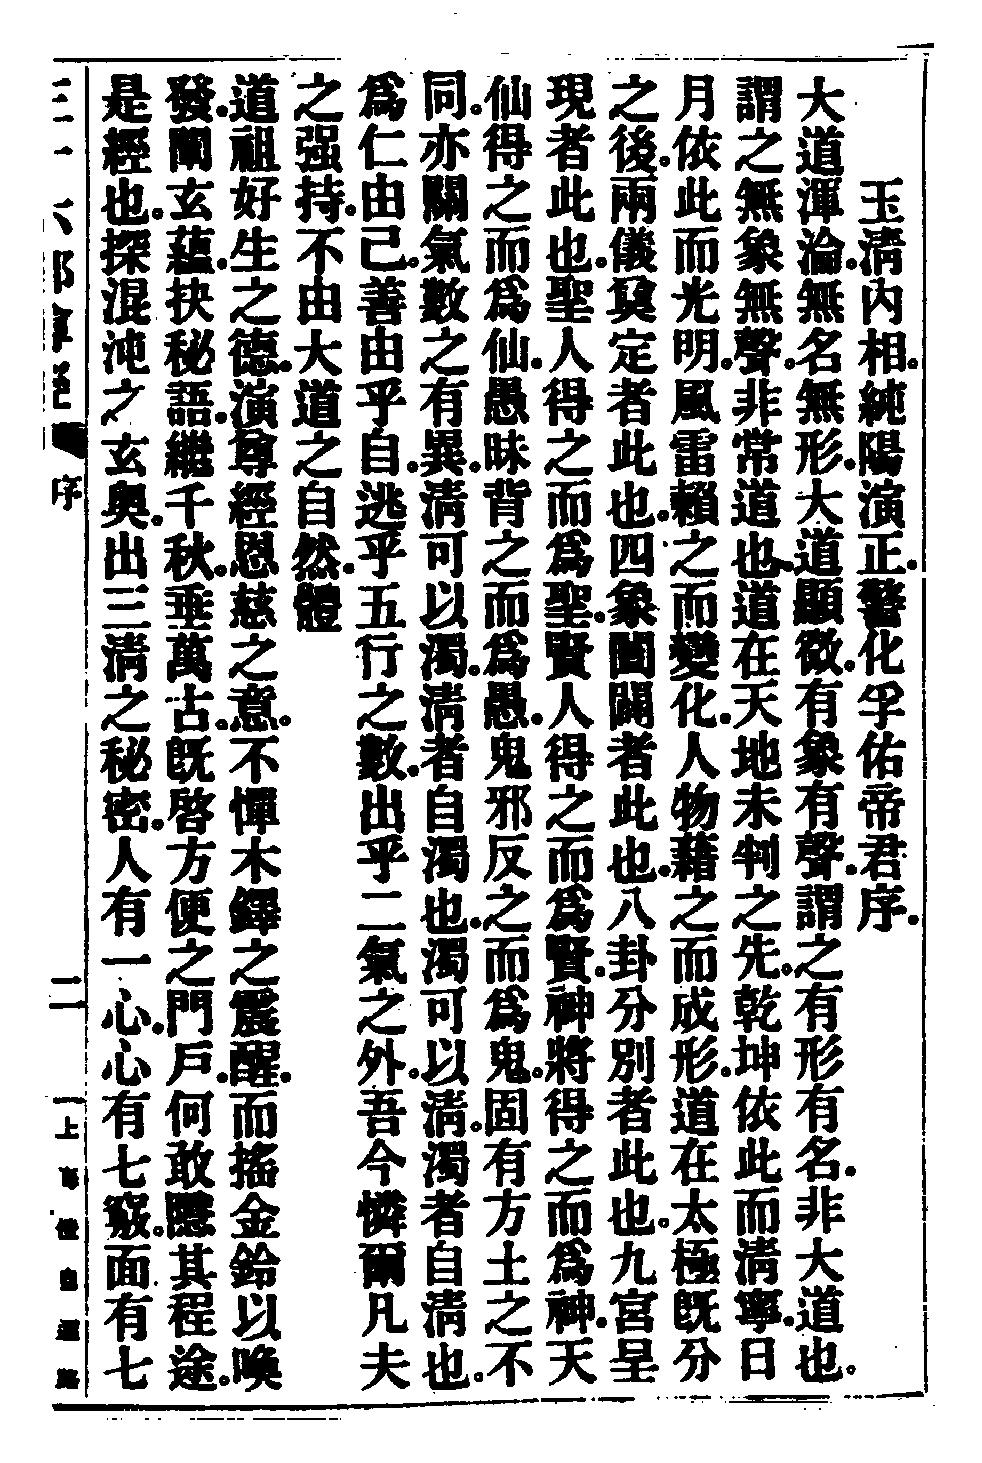 玉淸內相。純陽演正。警化孚佑帝君序。
大道渾淪。無名無形。大道顯微。有象有聲。謂之有形有名。非大道也。
謂之無象無聲。非常道也。道在天地未判之先。乾坤依此而淸寧。日
月依此而光明。風雷賴之而變化。人物藉之而成形。道在太極旣分
之後。兩儀奠定者此也。四象闔闢者此也。八卦分別者此也。九宮呈
現者此也。聖人得之而爲聖。賢人得之而爲賢。神將得之而爲神。天
仙得之而爲仙。愚昧背之而爲愚。鬼邪反之而爲鬼。固有方土之不
同。亦關氣數之有異。淸可以濁。淸者自濁也。濁可以淸。濁者自淸也。
爲仁由己。善由乎自。逃乎五行之數。出乎二氣之外。吾今憐爾凡夫
之强持。不由大道之自然。體
道祖好生之德。演尊經恩慈之意。不憚木鐸之震醒。而搖金鈴以喚
發。闡玄蘊。抉秘語。繼千秋。垂萬古。旣啓方便之門戶。何敢隱其程途。
是經也。探混沌之玄奧。出三淸之秘密。人有一心。心有七竅。面有七
序
二